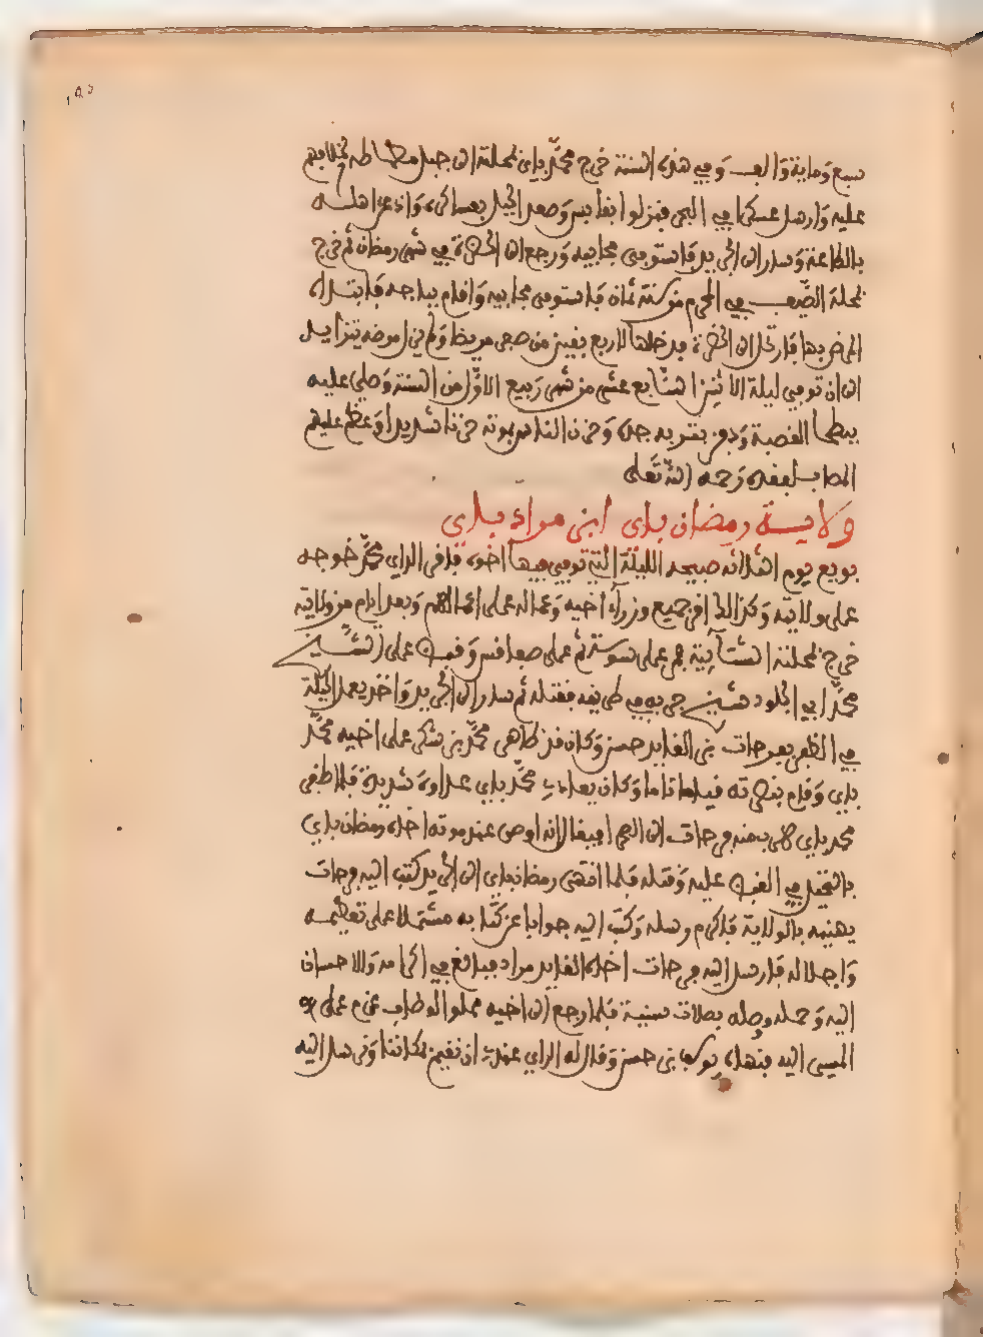 سبع وماية والف وفي هذه السنة خرج محمد باي بمحلته الى جبل مطماطه لخلافهم
عليه وارسل عسكرا في البحر فنزلوا بقابس وصعد الجبل بعساكره واذعن اهله
بالطاعة وسار الى الجريد فاستوفى مجابيه ورجع الى الحضرة في شهر رمضان ثم خرج
بمحلة الصيف في المحرم من سنة ثمان فاستوفى مجابيه واقام بباجه فابتداه
المرض بها فارتحل الى الحضرة فدخلها لاربع بقين من صفر مريضا ولم يزل مرضه يتزايد
الى ان توفي ليلة الاثنين السابع عشر من شهر ربيع الاول من السنة وصلي عليه
ببطحا القصبة ودفن بتربة جده وحزن الناس بموته حزنا شديدا وعظم عليهم
المصاب لفقده رحمه الله تعلى
ولاية رمضان باي ابن مراد باي
بويع يوم الثلاثا صبيحة الليلة التي توفي فيها اخوه فاقر الداي محمد خوجه
على ولايته وكذلك اقر جميع وزراء اخيه وعماله على اعمالهم وبعد ايام من ولايته
خرج بمحلته الشتائية فمر على سوسة ثم على صفاقس وقبض على
محمد ابي الجلود جي به في طريقه فقتله ثم سار الى الجريد واخذ يعمل الحيلة
في الظفر بفرحات بن القايد حسن وكان قد ظاهر محمد بن شكر على اخيه محمد
باي وقام بنصرته قياما تاما وكان يعادي محمد باي عداوة شديدة فلما ظفر
محمد باي هرب منه فرحات الى افريقا لانه اوصى عند موته اخاه رمضان باي
بالتحيل في القبض عليه وقتله فلما انتهى رمضان باي الى الجريد كتب اليه فرحات
يهنيه بالولاية فاكرم رسله وكتب اليه جوابا عن كتابه مشتملا على تعظيمه
واجلاله فارسل اليه فرحات اخاه القايد مراد فبالغ في اكرامه والاحسان
اليه وحمله وصله بصلات سنية فلما رجع الى اخيه مملو الوطاب عزم على
المسير اليه فنهاه يوسف بن حسن وقال له الراي عندي ان نقيم بمكاننا ونرسل اليه